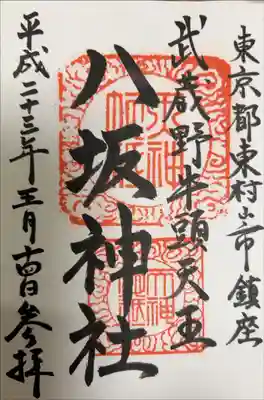 東京都東村山市鎮座
武蔵野牛頭天王
八坂神社
平成二十三年五月十四日参拝